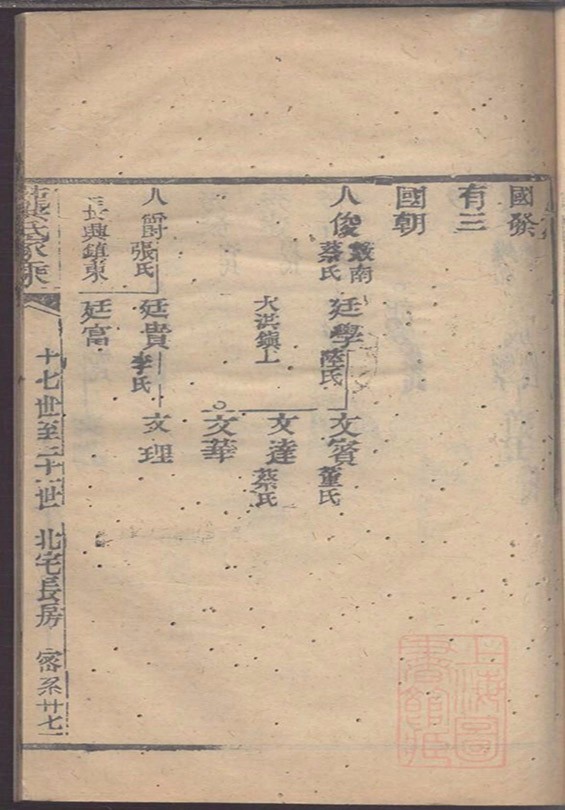 國發
有三
國朝
人俊
蔡氏
廷學
陸氏
文賓
董氏
大洪鎮上
文達
蔡氏
文華
人爵
張氏
廷貴
李氏
文理
長興鎮東
廷富
張氏家乘
十七世至二十一世
北宅長房
密系廿七
上海圖書館藏